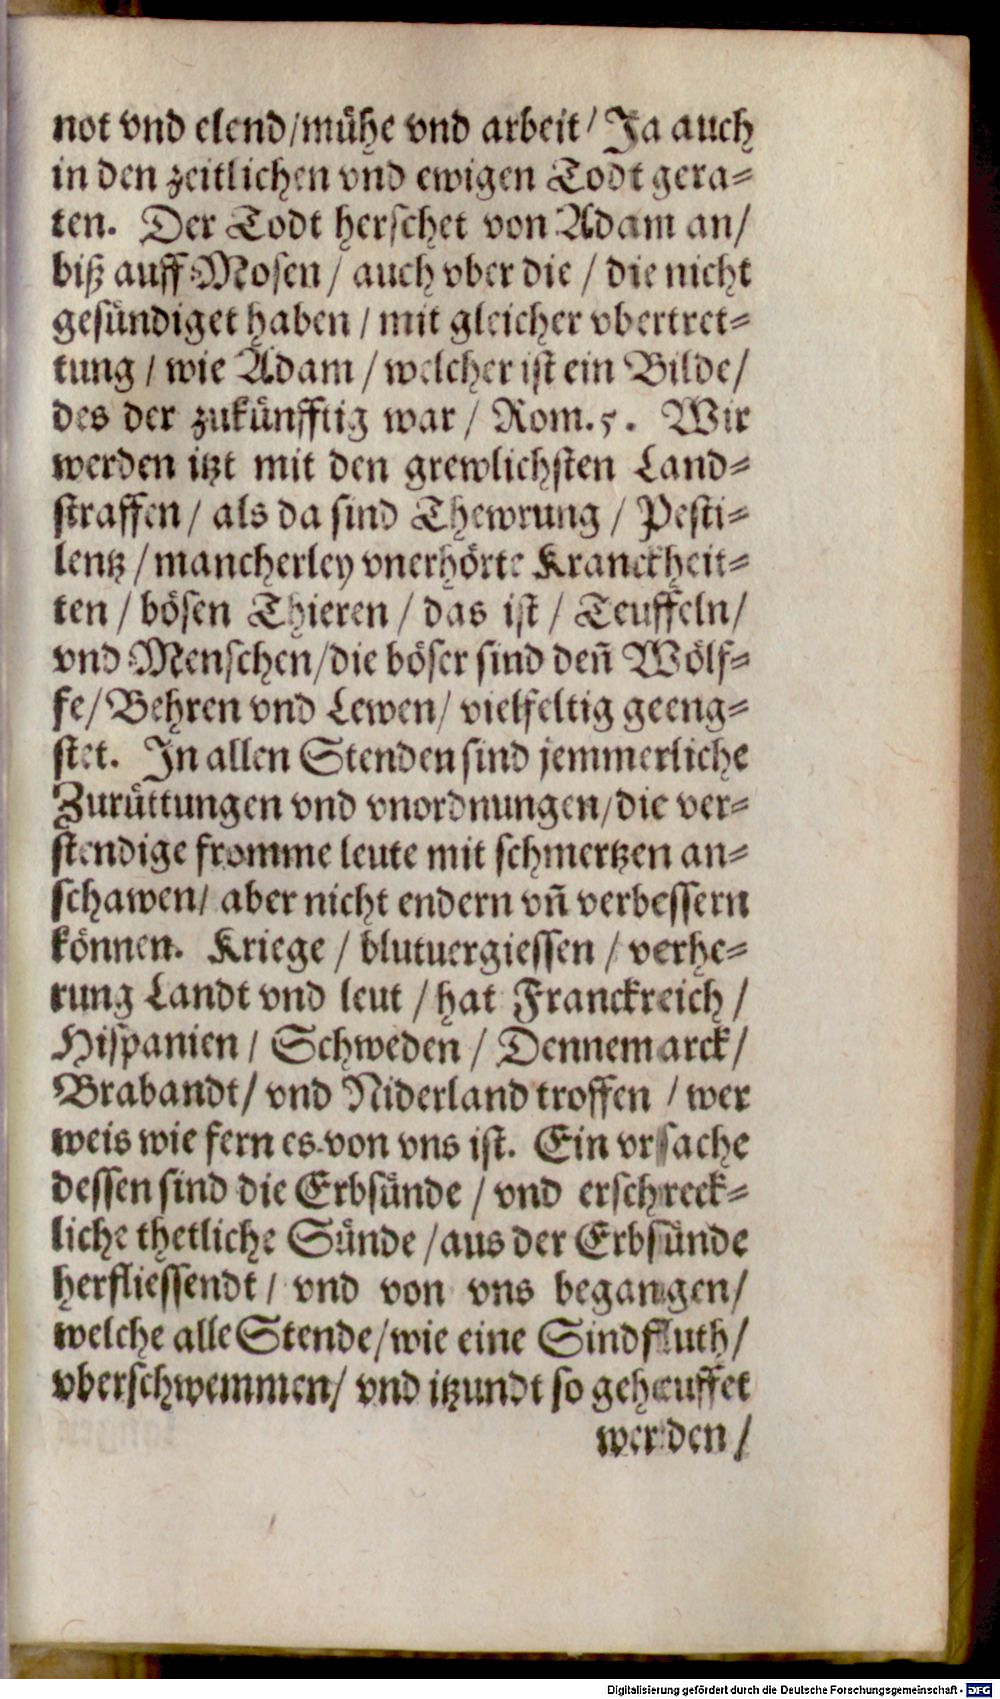 not vnd elend/mühe vnd arbeit/ Ja auch
in den zeitlichen vnd ewigen Todt gera-
ten. Der Todt herschet von Adam an/
biß auff Mosen / auch vber die / die nicht
gesündiget haben / mit gleicher vbertret-
tung / wie Adam / welcher ist ein Bilde/
des der zukünfftig war / Rom. 5. Wir
werden itzt mit den grewlichsten Land-
straffen / als da sind Thewrung / Pesti-
lentz / mancherley vnerhörte Kranckheit-
ten / bösen Thieren / das ist / Teuffeln/
vnd Menschen/die böser sind deñ Wölf-
fe/ Behren vnd Lewen/ vielfeltig geeng-
stet. In allen Stenden sind jemmerliche
Zurüttungen vnd vnordnungen/die ver-
stendige fromme leute mit schmertzen an-
schawen/ aber nicht endern vñ verbessern
können. Kriege / blutuergiessen / verhe-
rung Landt vnd leut / hat Franckreich /
Hispanien / Schweden / Dennemarck/
Brabandt/ vnd Niderland troffen / wer
weis wie fern es von vns ist. Ein vrsache
dessen sind die Erbsünde / vnd erschreck-
liche thetliche Sünde /aus der Erbsünde
herfliessendt / vnd von vns begangen/
welche alle Stende/wie eine Sindfluth/
vberschwemmen/ vnd itzundt so geheuffet
werden /
Digitalisierung gefördert durch die Deutsche Forschungsgemeinschaft - DFG